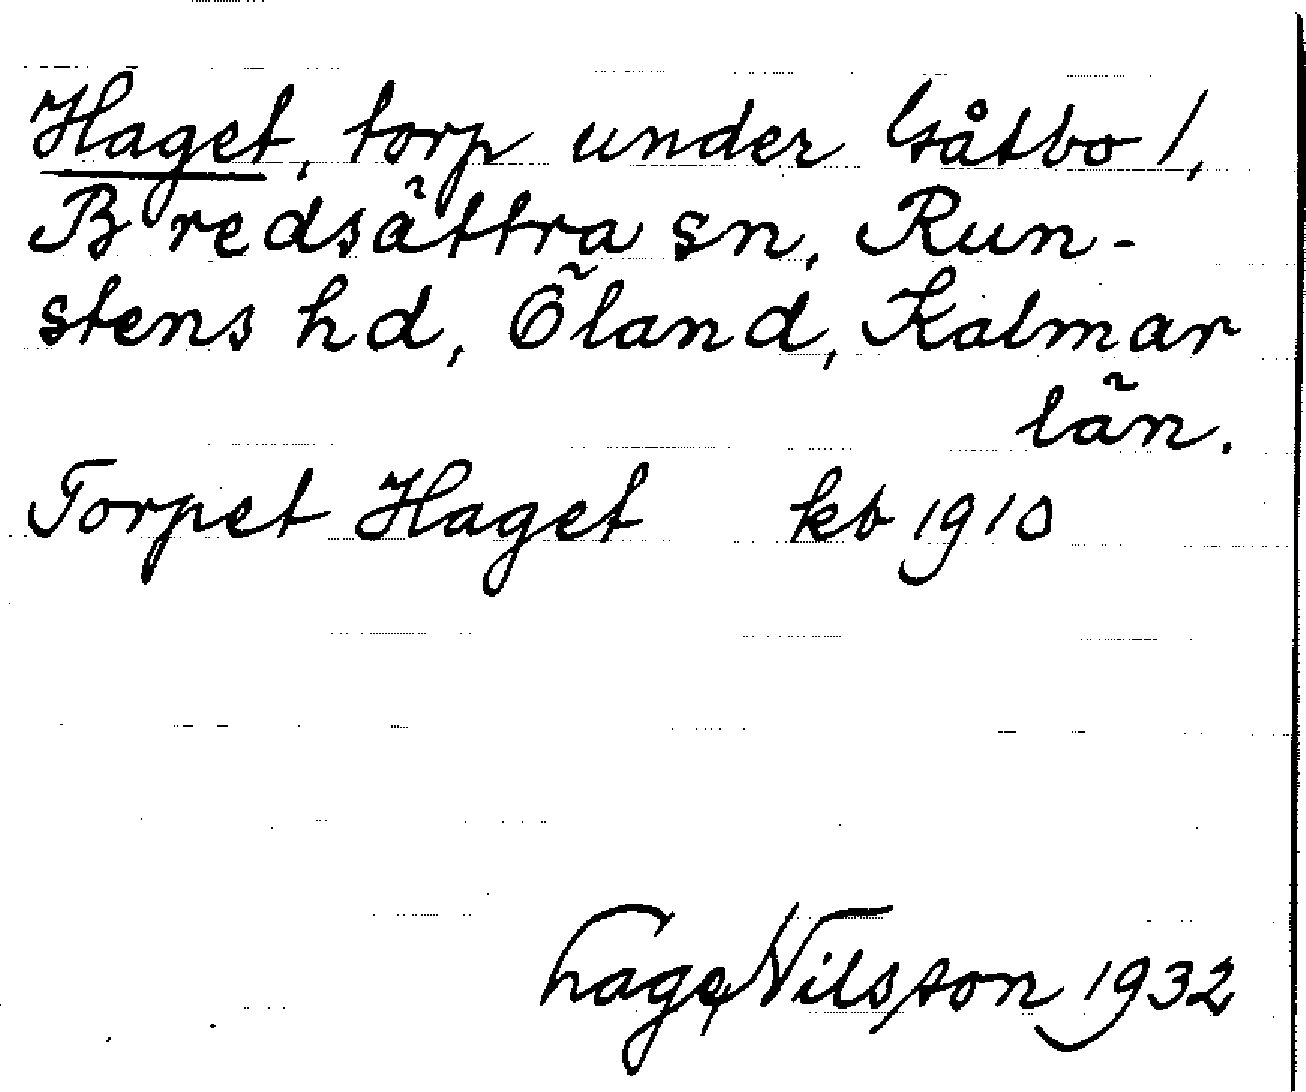 Haget, torp under Gåtbo 1,
Bredsättra sn, Run-
stens hd, Öland, Kalmar
län.
Torpet Haget kb 1910
Tage Nilsson 1932